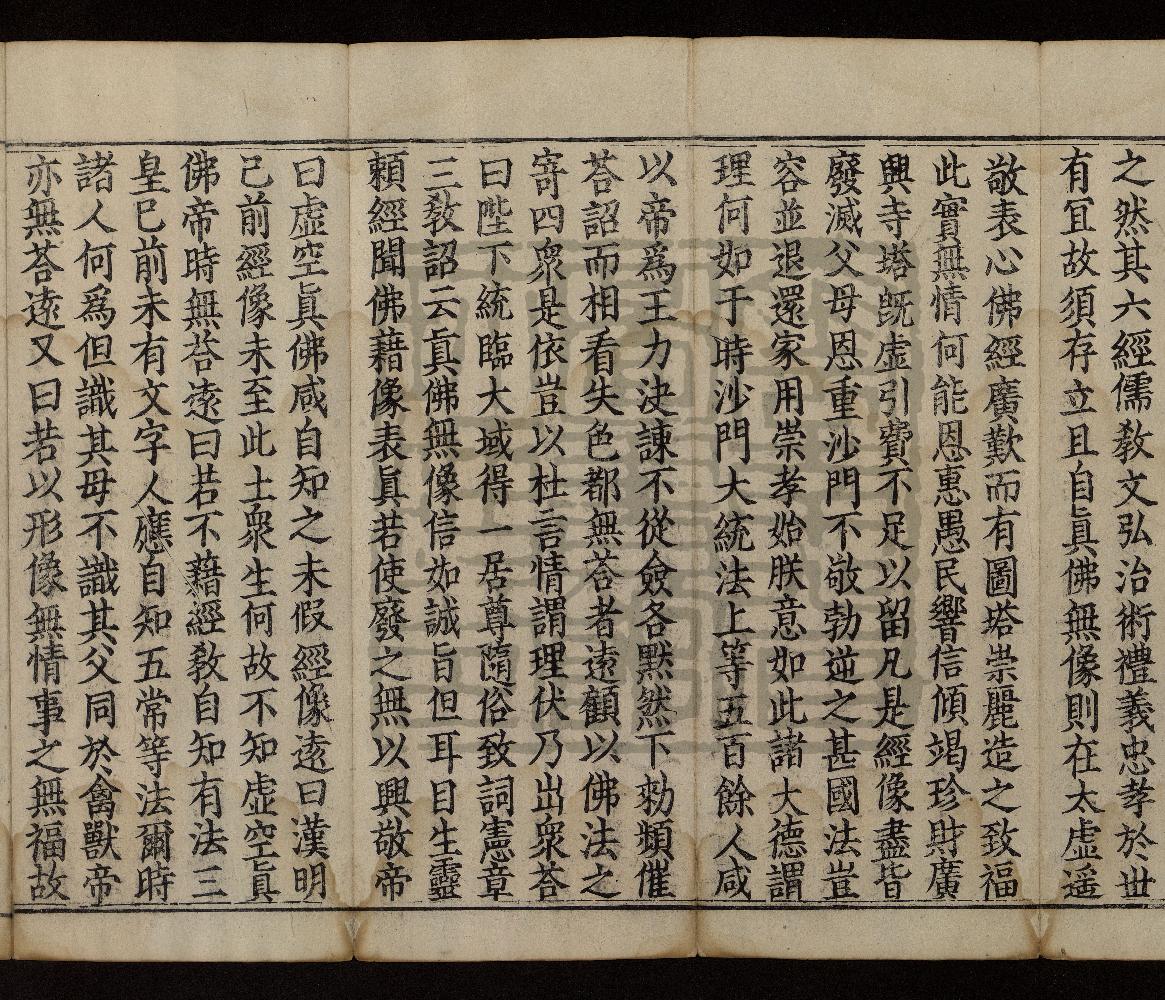 之然其六經儒教文弘治術禮義忠孝於世
有冝故須存立且自眞佛無像則在太虛遥
敬表心佛經廣歎而有圖塔崇麗造之致福
此實無情何能恩惠愚民響信傾竭珍財廣
興寺塔旣虛引費不足以留凡是經像盡皆
廢滅父母恩重沙門不敬勃逆之甚國法豈
容並退還家用崇孝始朕意如此諸大德謂
理何如于時沙門大統法上等五百餘人咸
以帝爲王力決諫不從僉各默然下勑頻催
荅詔而相看失色都無荅者遠顧以佛法之
寄四衆是依豈以杜言情謂理伏乃出衆荅
曰陛下統臨大域得一居尊隨俗致詞憲章
三教詔云眞佛無像信如誠旨但耳目生靈
頼經聞佛藉像表眞若使廢之無以興敬帝
曰虛空眞佛咸自知之未假經像遠曰漢明
已前經像未至此土衆生何故不知虛空眞
佛帝時無荅遠曰若不藉經教自知有法三
皇已前未有文字人應自知五常等法爾時
諸人何爲但識其母不識其父同於禽獸帝
亦無荅遠又曰若以形像無情事之無福故